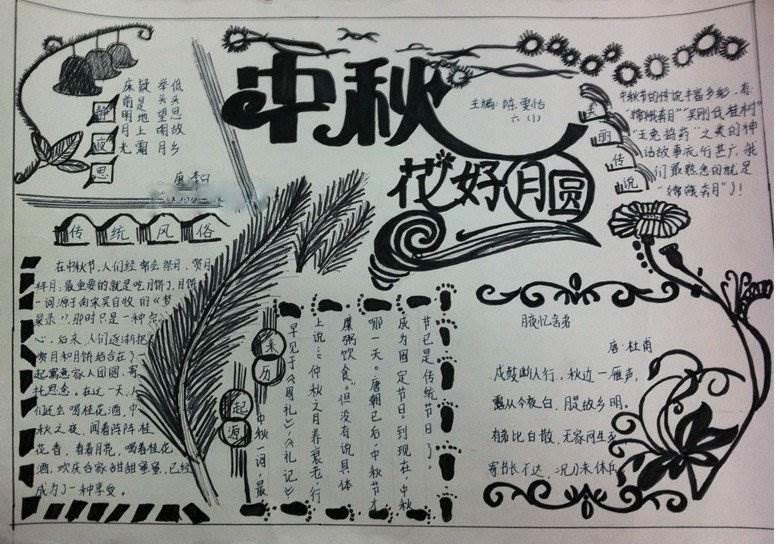 中秋
花好月圆
主编:陈雯怡
六(1)
静夜思
床前明月光
疑是地上霜
举头望明月
低头思故乡
唐 李白
美丽传说
中秋节的传说丰富多彩,有:
"嫦娥奔月""吴刚伐桂树"
"玉兔捣药"之类的神
话故事流行甚广,我
们最熟悉的就是
"嫦娥奔月"了!
传统风俗
在中秋节,人们经常会祭月、赏月
拜月,最重要的就是吃月饼了,月饼
一词源于南宋吴自牧的《梦
粱录》,那时只是一种点
心,后来,人们逐渐把
赏月和月饼结合在了一
起寓意家人团圆,寄
托思念。在这一天,人
们还会喝桂花酒,中
秋之夜,闻着阵阵桂
花香,看着月亮,喝着桂花
酒,欢庆合家甜甜蜜蜜,已经
成为了一种享受。
来历
起源
中秋一词,最
早见于《周礼》,《礼记》
上说:"仲秋之月养衰老,行
糜粥饮食。"但没有说具体
哪一天。唐朝已后中秋节才
成为固定节日。到现在,中秋
节已是传统节日了。
月夜忆舍弟
唐·杜甫
戍鼓断人行,秋边一雁声。
露从今夜白,月是故乡明。
有弟皆分散,无家问生死
寄书长不达,况乃未休兵。